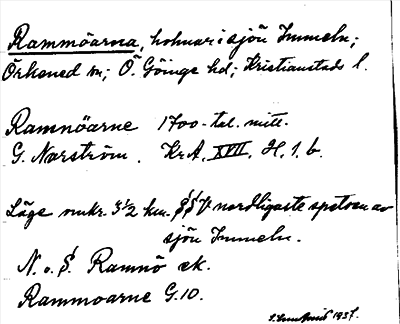 Rammöarna, holmar i sjön Immeln;
Örkened sn; Ö. Göinge hd; Kristianstads l.
Ramnöarne 1700-tal. mitt.
G. Narström. KrA. XVII. H. 1. b.
Läge omkr. 3½ km. SSV nordligaste spetsen av
sjön Immeln.
N. o. S. Ramnö ek.
Rammoarne G.10.
1937.